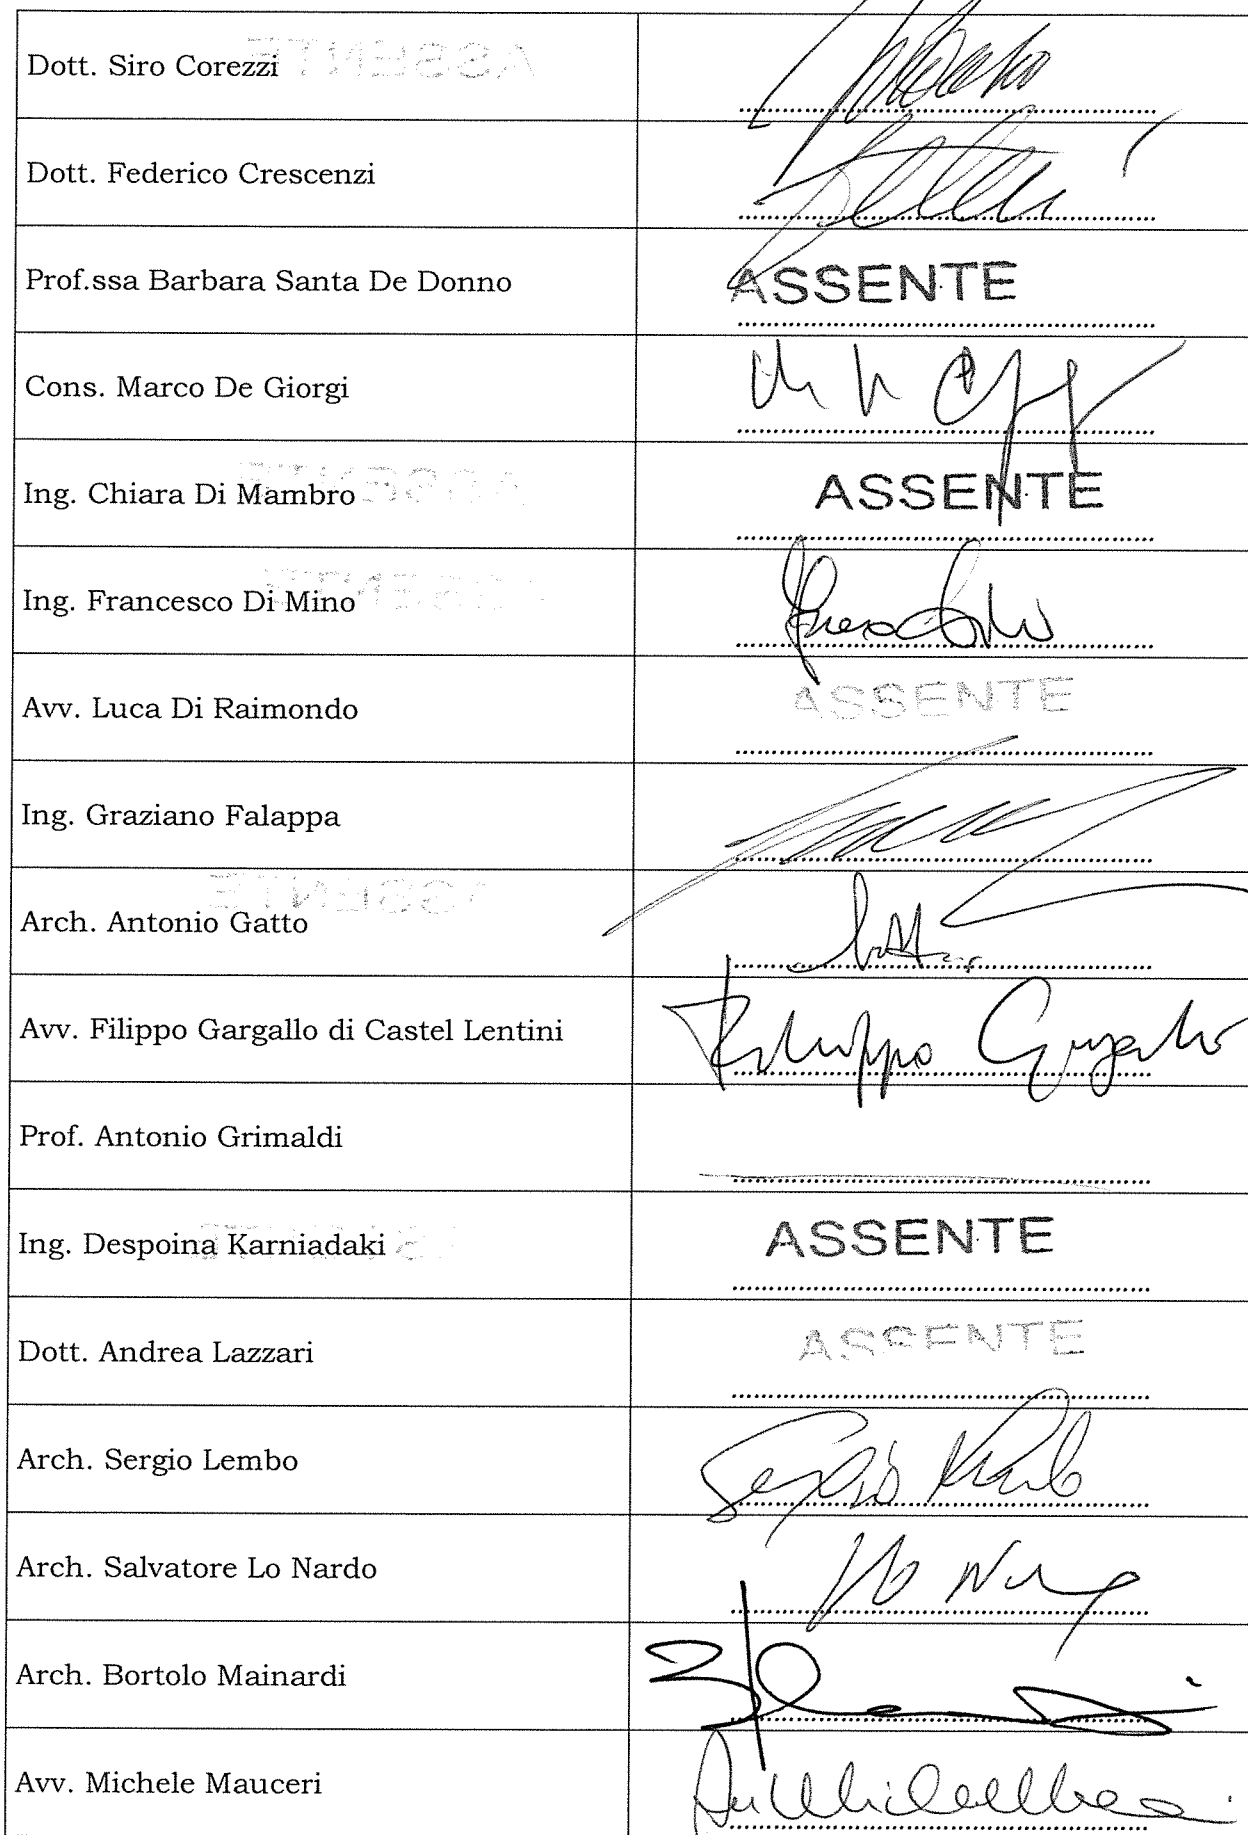 Dott. Siro Corezzi
Dott. Federico Crescenzi
Prof.ssa Barbara Santa De Donno ASSENTE
Cons. Marco De Giorgi
Ing. Chiara Di Mambro ASSENTE
Ing. Francesco Di Mino
Avv. Luca Di Raimondo ASSENTE
Ing. Graziano Falappa
Arch. Antonio Gatto
Avv. Filippo Gargallo di Castel Lentini Filippo Gargallo
Prof. Antonio Grimaldi
Ing. Despoina Karniadaki ASSENTE
Dott. Andrea Lazzari ASSENTE
Arch. Sergio Lembo Sergio Lembo
Arch. Salvatore Lo Nardo
Arch. Bortolo Mainardi
Avv. Michele Mauceri